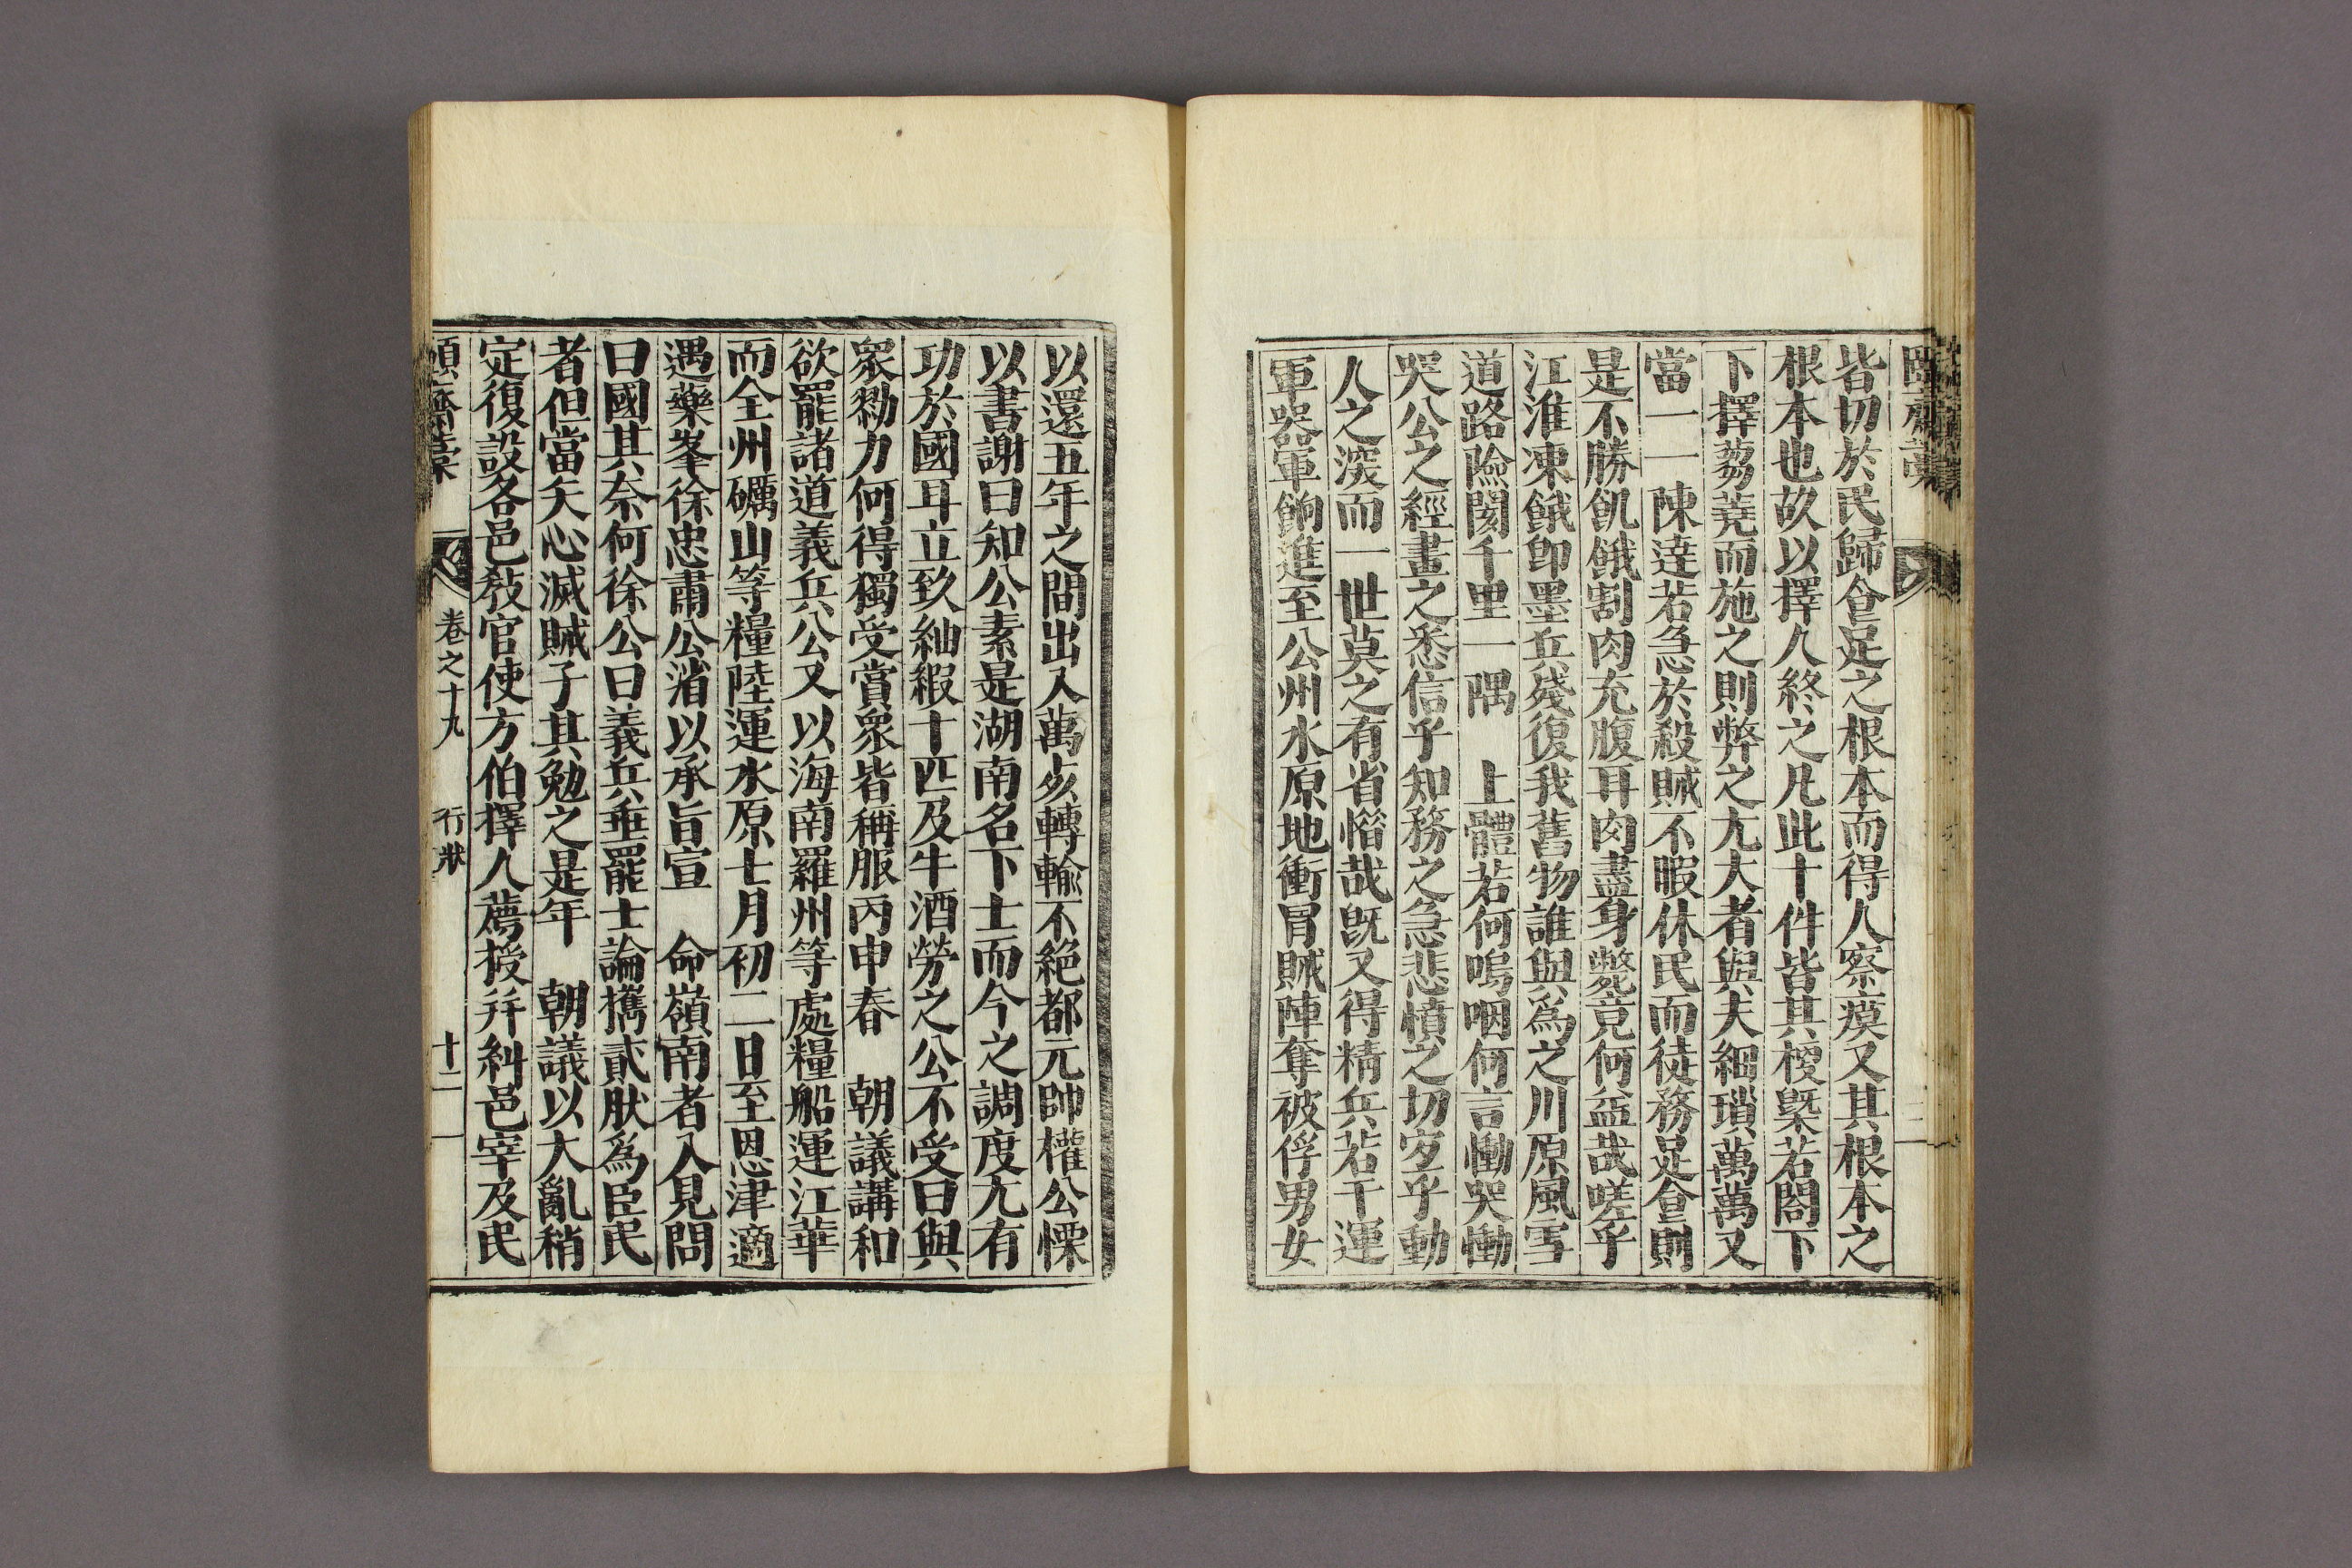 皆切於民歸食足之根本而得人察瘼又其根本之
根本也故以擇人終之凡此十件皆其梗槩若閤下
下擇蒭蕘而施之則弊之尤大者與夫細瑣萬萬又
當一一陳達若急於殺賊不暇休民而徒務足食則
是不勝飢餓割肉充腹耳肉盡身斃竟何益哉嗟乎
江淮凍餓卽墨兵殘復我舊物誰與爲之川原風雪
道路險闋千里一隅 上體若何嗚咽何言慟哭慟
哭公之經畫之悉信乎知務之急悲憤之切宜乎動
人之深而一世莫之有省惜哉旣又得精兵若干運
軍器軍餉進至公州水原地衝冒賊陣奪被俘男女
以還五年之間出入萬死轉輸不絶都元帥權公慄
以書謝曰知公素是湖南名下士而今之調度尤有
功於國耳立致紬縀十匹及牛酒勞之公不受曰與
衆勠力何得獨受賞衆皆稱服丙申春 朝議講和
欲罷諸道義兵公又以海南羅州等處糧船運江華
而全州礪山等糧陸運水原七月初二日至恩津適
遇藥峯徐忠肅公渻以承旨宣 命嶺南者入見問
曰國其奈何徐公曰義兵垂罷士論携貳肰爲臣民
者但當矢心滅賊子其勉之是年 朝議以大亂稍
定復設各邑敎官使方伯擇人薦授并糾邑宰及民
頤齋藁 卷之十九 行狀 十二